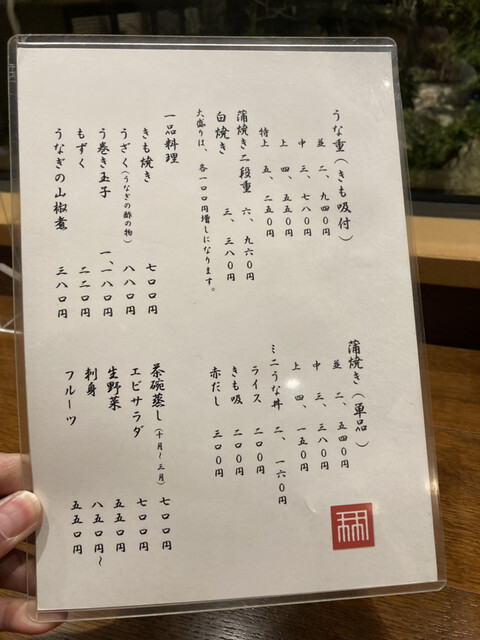 うな重（きも吸付）
並　二、九四〇円
中　三、七八〇円
上　四、五五〇円
特上　五、二五〇円
蒲焼き二段重　六、九六〇円
白焼き　三、三八〇円
大盛りは、各一〇〇円増しになります。
一品料理
きも焼き　七〇〇円
うざく（うなぎの酢の物）　八八〇円
う巻き玉子　一、一八〇円
もずく　二二〇円
うなぎの山椒煮　三八〇円
蒲焼き（単品）
並　二、五四〇円
中　三、三八〇円
上　四、一五〇円
ミニうな丼　二、一六〇円
ライス　二〇〇円
きも吸　二〇〇円
赤だし　三〇〇円
茶碗蒸し（十月〜三月）　七〇〇円
エビサラダ　七〇〇円
生野菜　五五〇円
刺身　八五〇円〜
フルーツ　五五〇円